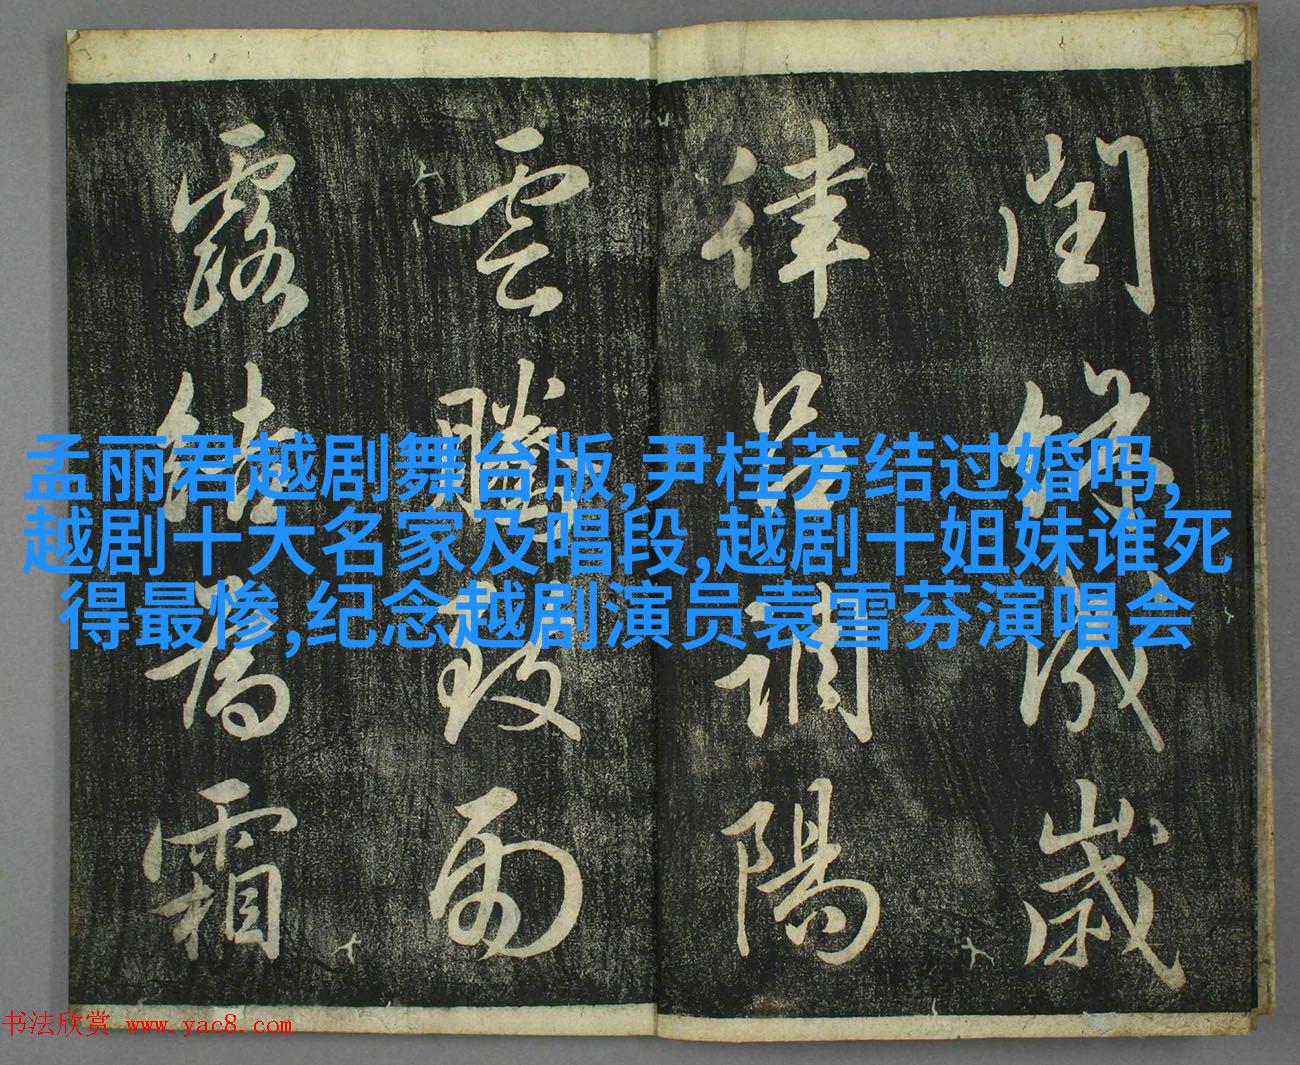 閏餘成歲
律呂調陽
雲騰致雨
露結為霜
孟丽君越剧舞台版,尹桂芳结过婚吗,
越剧十大名家及唱段,越剧十姐妹谁死
得最惨,纪念越剧演员袁雪芬演唱会
书法欣赏 www.yac8.com